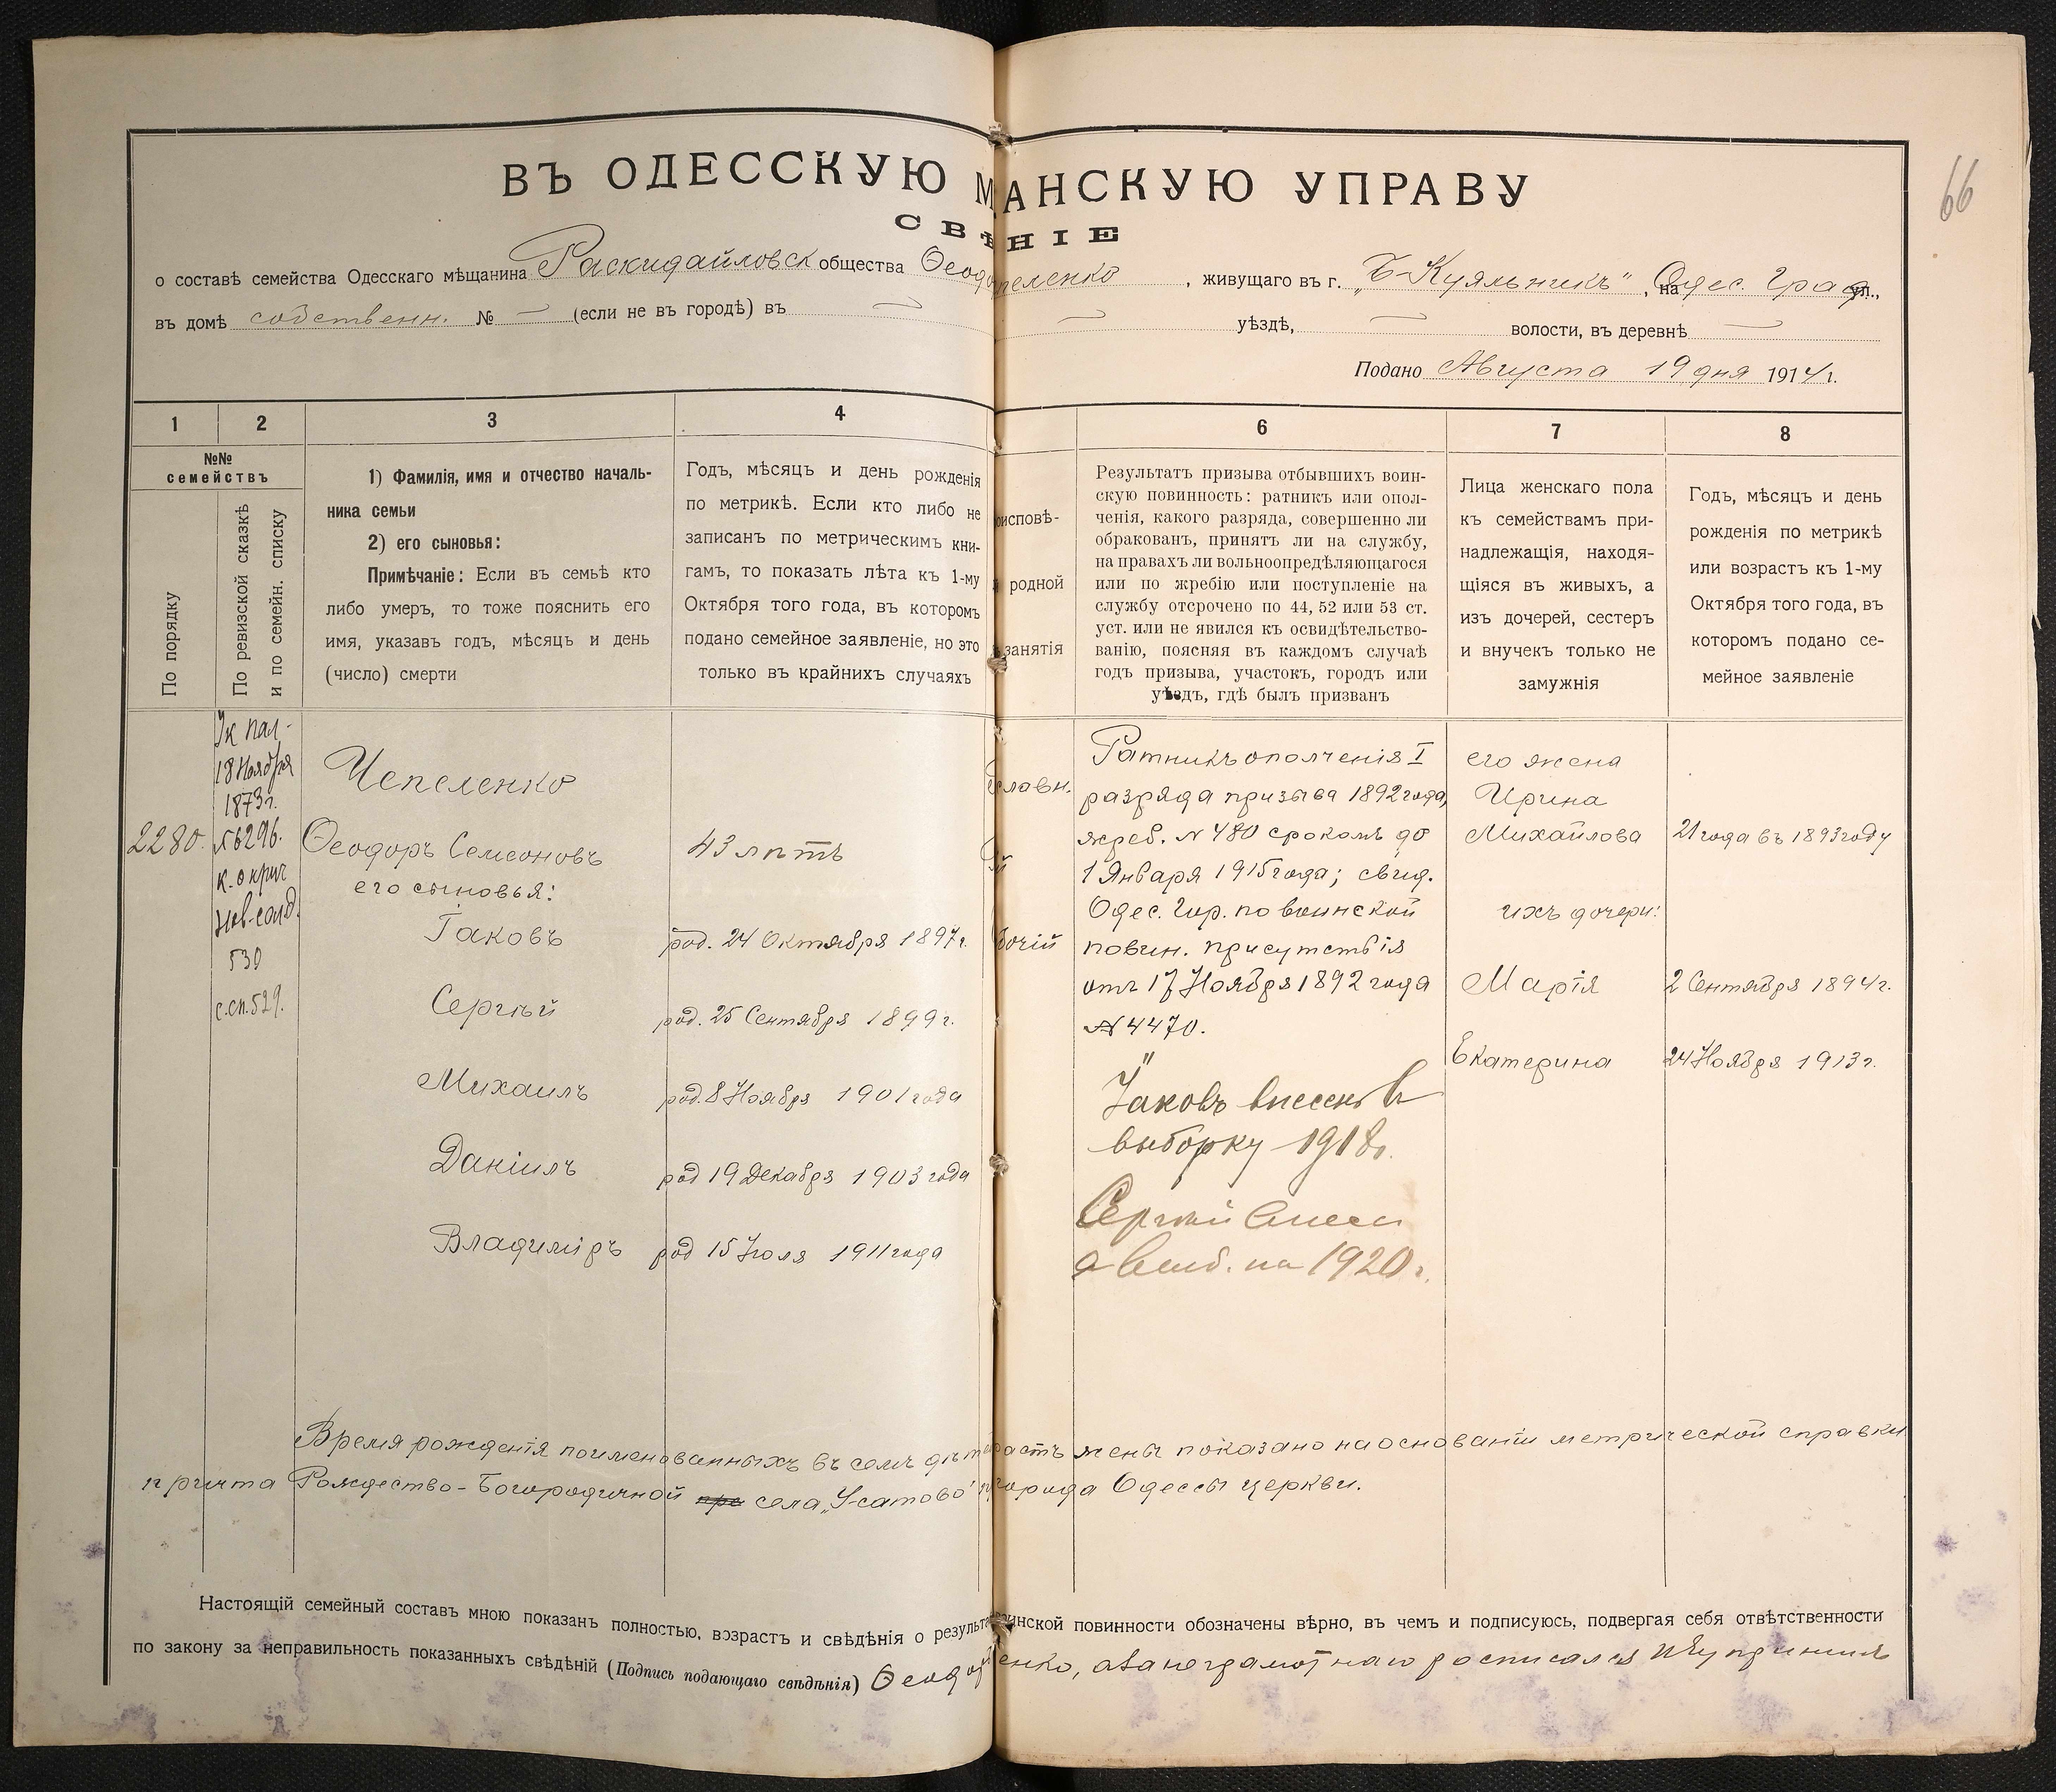 66
ВЪ ОДЕССКУЮ М АНСКУЮ УПРАВУ
СВѢ НІЕ
о составѣ семейства Одесскаго мѣщанина Раскидайловск общества Ѳеод пеленко , живущаго въ г. „Б-Куяльникъ" , на Одес. Град ул.,
въ домѣ собственн. № — (если не въ городѣ) въ — — уѣздѣ, — волости, въ деревнѣ —
Подано Августа 19 дня 1914 г.
1 2 3 4 6 7 8
№№ семействъ
По порядку
По ревизской сказкѣ и по семейн. списку
1) Фамилія, имя и отчество началь-
ника семьи
2) его сыновья:
Примѣчаніе: Если въ семьѣ кто
либо умеръ, то тоже пояснить его
имя, указавъ годъ, мѣсяцъ и день
(число) смерти
Годъ, мѣсяцъ и день рожденія
по метрикѣ. Если кто либо не
записанъ по метрическимъ кни-
гамъ, то показать лѣта къ 1-му
Октября того года, въ которомъ
подано семейное заявленіе, но это
только въ крайнихъ случаяхъ
оисповѣ-
родной
занятія
Результатъ призыва отбывшихъ воин-
скую повинность: ратникъ или опол-
ченія, какого разряда, совершенно ли
обракованъ, принятъ ли на службу,
на правахъ ли вольноопредѣляющагося
или по жребію или поступленіе на
службу отсрочено по 44, 52 или 53 ст.
уст. или не явился къ освидѣтельство-
ванію, поясняя въ каждомъ случаѣ
годъ призыва, участокъ, городъ или
уѣздъ, гдѣ былъ призванъ
Лица женскаго пола
къ семействамъ при-
надлежащія, находя-
щіяся въ живыхъ, а
изъ дочерей, сестеръ
и внучекъ только не
замужнія
Годъ, мѣсяцъ и день
рожденія по метрикѣ
или возрастъ къ 1-му
Октября того года, въ
которомъ подано се-
мейное заявленіе
2280.
Ук пал-
18 Ноября
1873г.
№6296.
530
с.сп.529.
Чепеленко
Ѳеодоръ Семеоновъ
его сыновья:
Іаковъ
Сергѣй
Михаилъ
Даніилъ
Владиміръ
43 лѣтъ
род. 24 Октября 1897г.
род. 25 Сентября 1899г.
род. 8 Ноября 1901 года
род 19 Декабря 1903 года
род 15 Іюля 1911 года
славн.
й
бочій
Ратникъ ополченія I
разряда призыва 1892 года,
жреб. № 480 срокомъ до
1 Января 1915 года; свид.
Одес. Гор. по воинской
повин. присутствія
отъ 17 Ноября 1892 года
№ 4470.
Іаковъ внесенъ въ
выборку 1918г.
Сергѣй внесен
в выб. на 1920 г.
его жена
Ирина
Михайлова
ихъ дочери:
Марія
Екатерина
21 года въ 1893 году
2 Сентября 1894г.
24 Ноября 1913г.
Время рожденія поименованныхъ въ семъ дѣте растъ жены показано на основаніи метрической справки
причта Рождество-Богородичной села „Усатово" города Одессы церкви.
Настоящій семейный составъ мною показанъ полностью, возрастъ и свѣдѣнія о результа воинской повинности обозначены вѣрно, въ чемъ и подписуюсь, подвергая себя отвѣтственности
по закону за неправильность показанныхъ свѣдѣній (Подпись подающаго свѣдѣнія) Ѳеодор енко, а за неграмотнаго росписался